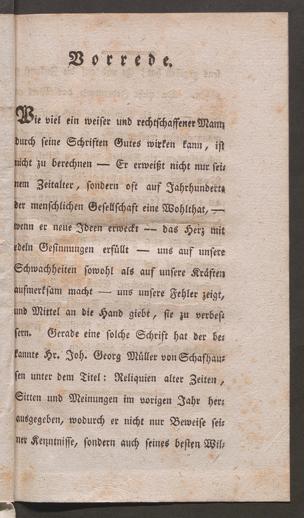 Vorrede.
Wie viel ein weiser und rechtschaffener Mann
durch seine Schriften Gutes wirken kann, ist
nicht zu berechnen — Er erweißt nicht nur sei-
nem Zeitalter, sondern oft auf Jahrhunderte
der menschlichen Gesellschaft eine Wohlthat, —
wenn er neue Ideen erweckt — das Herz mit
edeln Gesinnungen erfüllt — uns auf unsere
Schwachheiten sowohl als auf unsere Kräften
aufmerksam macht — uns unsere Fehler zeigt,
und Mittel an die Hand giebt, sie zu verbes-
sern. Gerade eine solche Schrift hat der be-
kannte Hr. Joh. Georg Müller von Schafhau-
sen unter dem Titel: Reliquien alter Zeiten,
Sitten und Meinungen im vorigen Jahr her-
ausgegeben, wodurch er nicht nur Beweise sei-
ner Kenntnisse, sondern auch seines besten Wil-